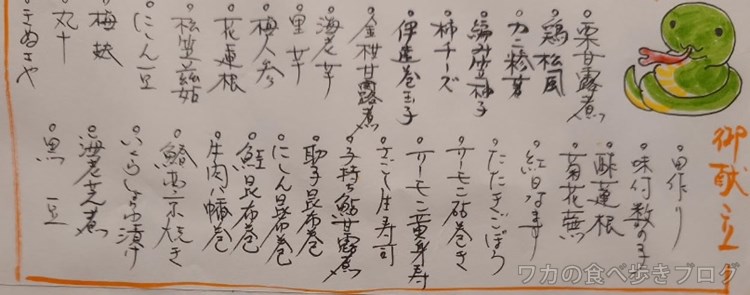 御献立
栗甘露煮
鶏松風
カニ
編み笠柚子
柿チーズ
伊達巻玉子
金柑甘露煮
海老芋
里芋
梅人参
花蓮根
松笠慈姑
にしん豆
梅麸
丸十
きぬさや
田作り
味付数の子
酢蓮根
菊花蕪
紅白なます
たたきごぼう
サーモン砧巻き
サーモン黄身寿
さごし生寿司
子持ち鮎甘露煮
助子昆布巻
にしん昆布巻
鮭昆布巻
牛肉八幡巻
焼き
いくらしょうゆ漬け
海老芝煮
黒豆
ワカの食べ歩きブログ